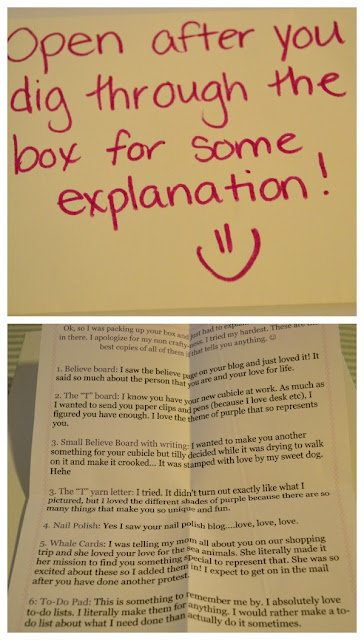 Open after you
dig through the
box for some
explanation!
Ok, so I was packing up your box and just had to explain
in there. I apologize for my non crafty-ness. I tried my hardest. These are
best copies of all of them if that tells you anything. ☺
1. Believe board: I saw the believe page on your blog and just loved it! It
said so much about the person that you are and your love for life.
2. The "T" board: I know you have your new cubicle at work. As much as
I wanted to send you paper clips and pens (because I love desk etc), I
figured you have enough. I love the theme of purple that so represents
you.
3. Small Believe Board with writing: I wanted to make you another
something for your cubicle but tilly decided while it was drying to walk
on it and make it crooked... It was stamped with love by my sweet dog.
Hehe
3. The "T" yarn letter: I tried. It didn't turn out exactly like what I
pictured, but I loved the different shades of purple because there are so
many things that make you so unique and fun.
4. Nail Polish: Yes I saw your nail polish blog....love, love, love.
5. Whale Cards: I was telling my mom all about you on our shopping
trip and she loved your love for the sea animals. She literally made it
her mission to find you something special to represent that. She was so
excited about these so I added them in! I expect to get on in the mail
after you have done another protest.
6: To-Do Pad: This is something to remember me by. I absolutely love
to-do lists. I literally make them for anything. I would rather make a to-
do list about what I need done than actually do it sometimes.